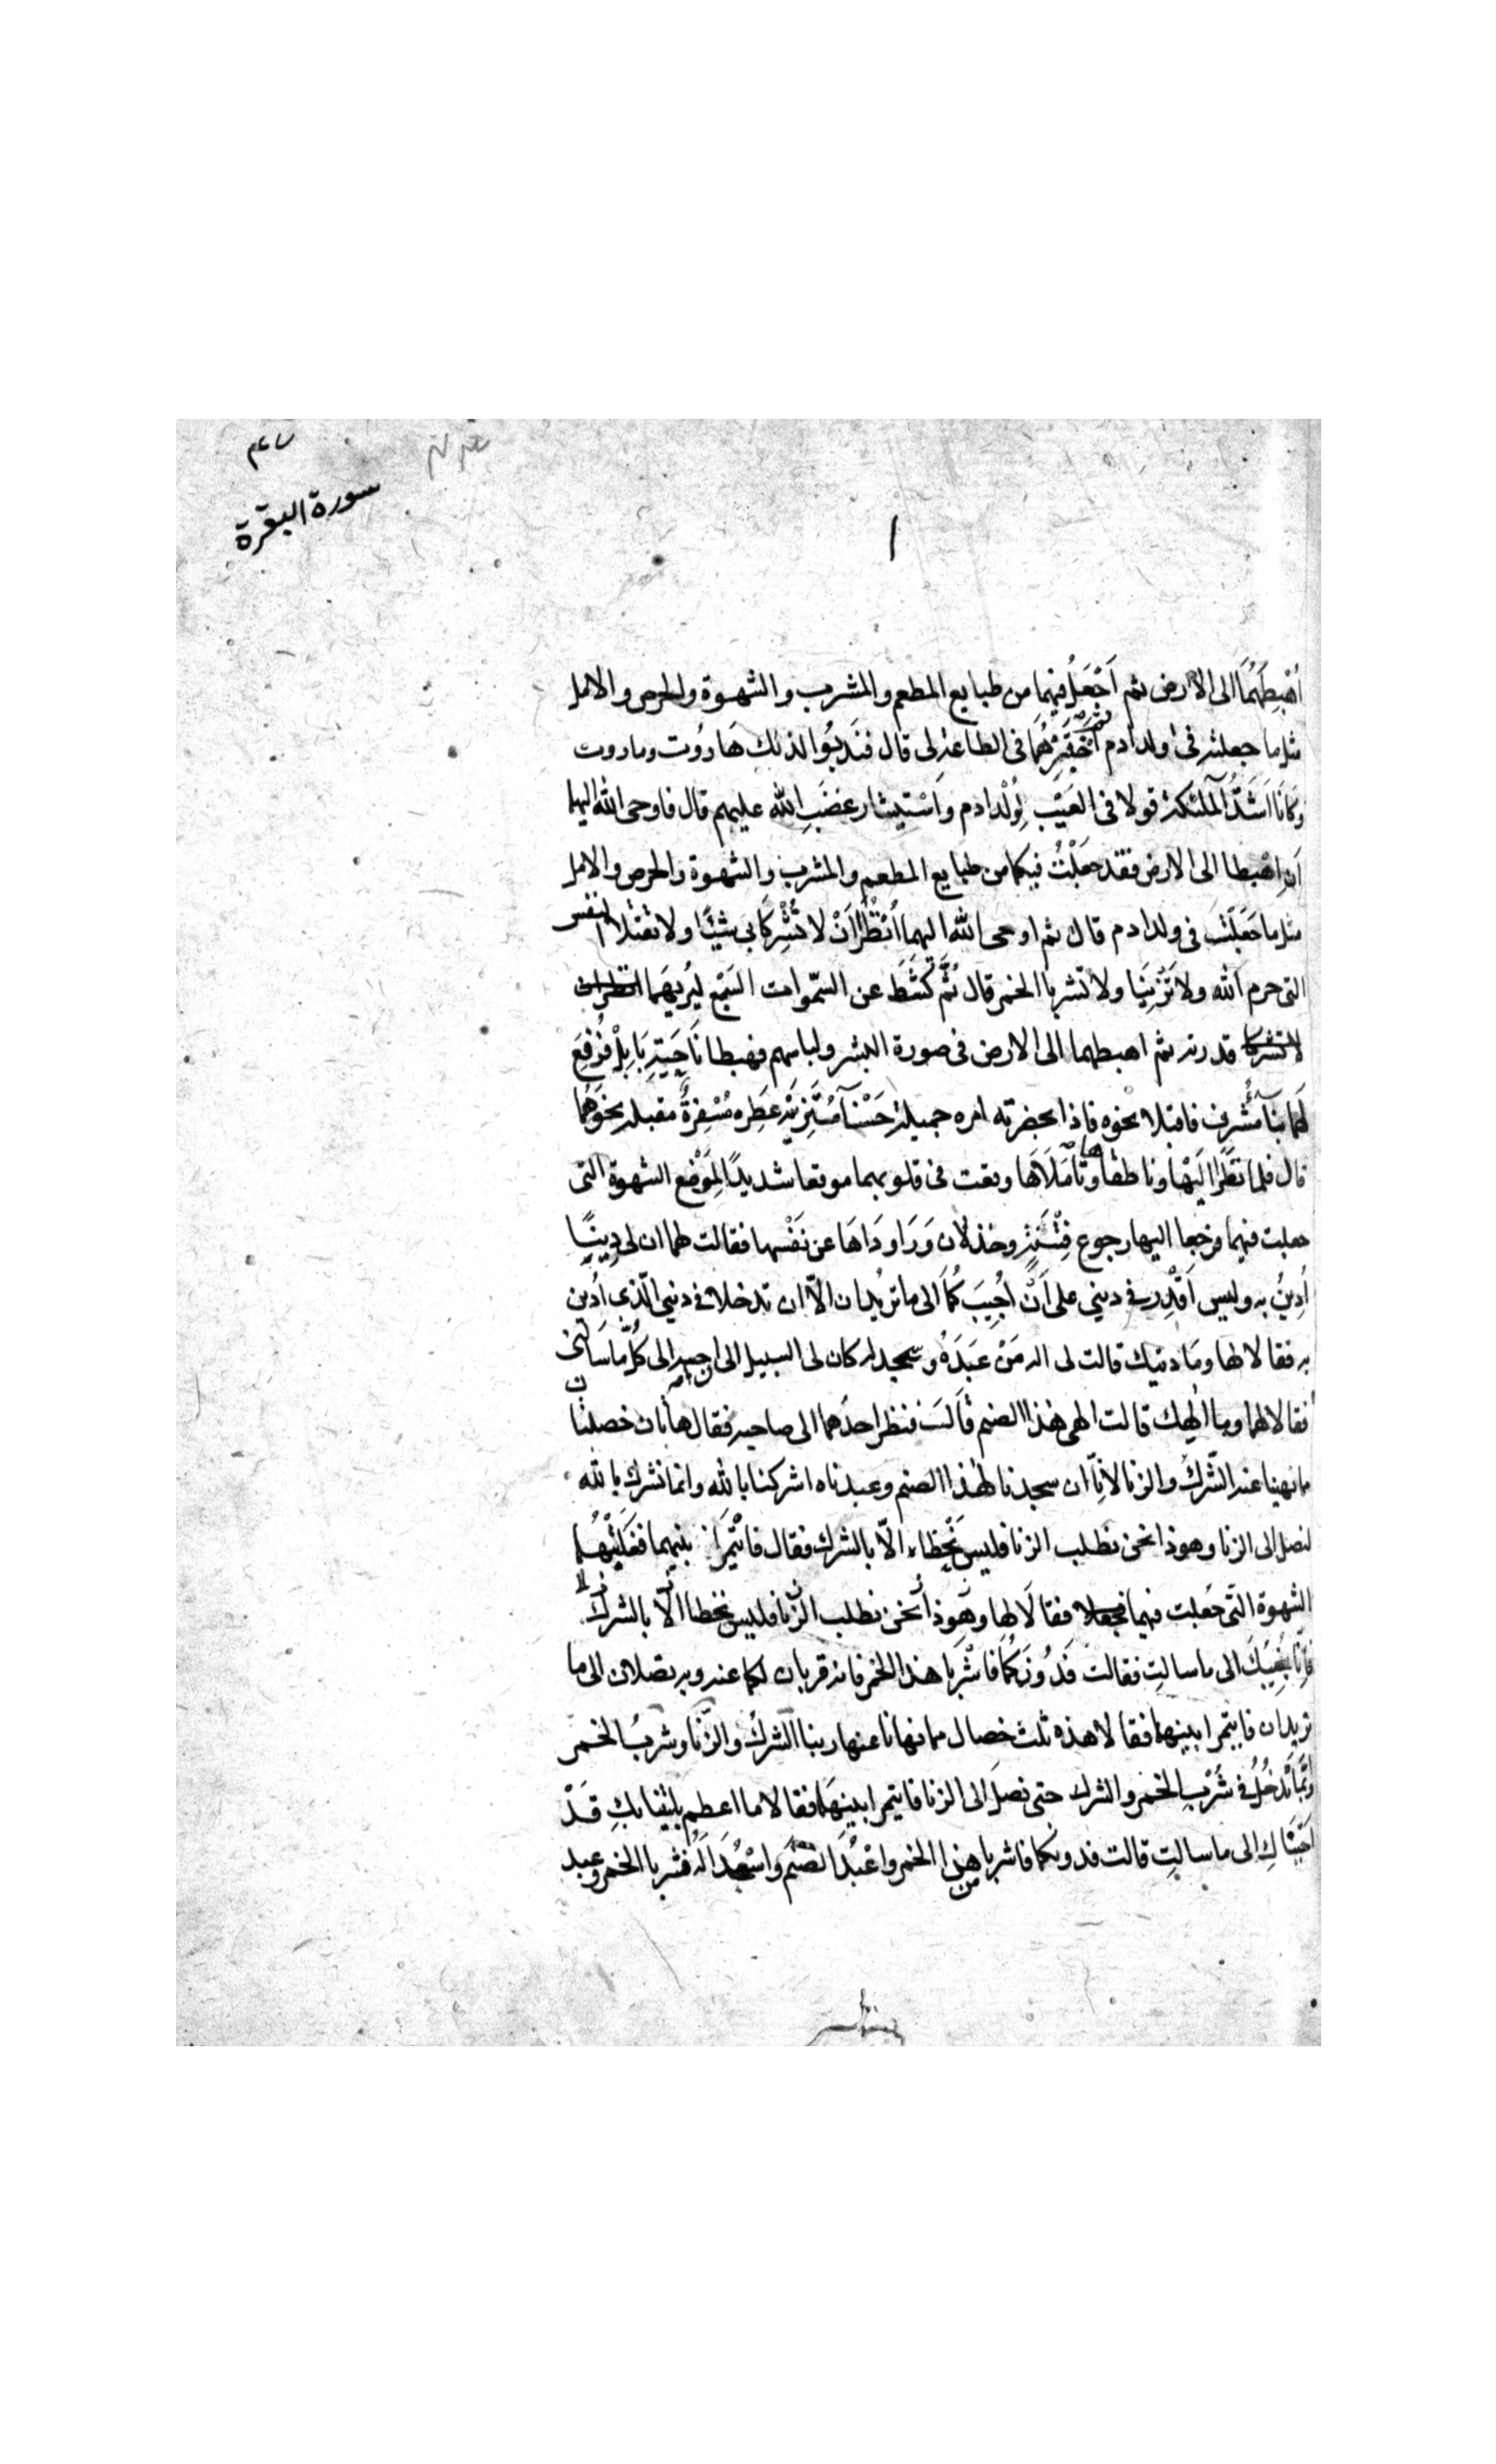 سورة البقرة
١
اُهْبِطَهُمَا الى الارض ثم اَجْعَلُ فيهما من طبايع المطعم والمشرب والشهوة والحرص والامل
مثل ما جعلته فى اولد ادم ثم اَخْتَبِرْهُمَا فى الطاعة لى قال فَنَدَبُوا لذلك هَارُوت وماروت
وَكَانَا اَشَدُّ الْمَلئكة قولا فى العَيْبِ لِوُلْد ادم وَاسْتِيثار غَضَبِ الله عليهم قال فاوحى الله اليهما
اَنِ اهْبِطا الى الارض فقد جَعَلْتُ فيكما من طبايع المطعم والمشرب والشهوة والحرص والامل
مثل ما جَعَلْتُ فى ولد ادم قال ثم اوحى الله اليهما اُنْظُرَا اَنْ لا تُشْرِكَا بى شيئًا ولا تقتلا النفس
التى حرم الله ولا تَزْنِيَا ولا تشربا الخمر قال ثُمَّ كَشَطَ عن السّموات السَّبْع لِيُرِيَهُمَا
قدرته ثم اهبطهما الى الارض فى صورة البشر ولباسهم فهبطا نَاحِيَةِ بَابِلْ فَرُفِعَ
لَهُمَا بِنَاءٌ مُشْرِف فاقبلا نحوه فاذا بحضرته امره جميلة حَسْنَآ مُتَزَيِّنَة عَطِره مُسْفِرَةٌ مقبلة نحوَهُمَا
قال فلما نَظَرَا اِلَيْهَا وناطقاها وتَأَمَّلَاهَا وقعت فى قلوبهما موقعا شديدًا لِمَوْضِع الشهوة التى
جعلت فيهما فرجعا اليها رجوع فِتْنَةٍ وخذلان وَرَاوَدَاهَا عن نَفْسها فقالت لهما ان لى دِينًا
اُدِينُ به وليس اَقْدِر فى دينى على اَنْ اُجِيبَكُمَا الى ما تريدان الاّ ان تدخلا فى دينى الّذى اُدين
به فقالا لها وما دينك قالت لى اله مَنْ عَبَدَهُ وسجد له كان لى السبيل الى ان اجيبه الى كُلِّ ما سَالَنى
فقالا لها وما اِلهك قالت الهى هذا الصنم قَالَتْ فنظر احدهما الى صاحبه فقال هاتان خصلتان
مما نهينا عنه الشّركُ والزنا لانّا ان سجدنا لهذا الصنم وعبدناه اشركنا بالله وانما نشرك بالله
لنصل الى الزنا وهو ذا نحن نطلب الزنا فليس نُحْظَاء الاّ بالشرك فقال فَائْتَمَرَا بينهما فَغَلَبَتْهُمَا
الشهوة التّى جُعلت فيهما فقالَا لها وهَو ذا نَحْن نطلب الزّنا فليس نحظا الاّ بالشرك
فَاِنَّا نُجِيبُكَ الى ما سالتِ فقالت فَدُونَكُمَا فَاشْرَبَا هذا الخمر فانه قربان لكما عنده وبه تصلان الى ما
تريدان فايتمرا بينهما فقالا هذه ثلث خصال مما نهانا عنها ربنا الشركُ والزّنَا وشربُ الخمر
وَاِنَّمَا نَدْخُلُ فى شُرْبِ الخمر والشرك حتى نصلَ الى الزنا فايتمرا بينهَمَا فقالا ما اعظم بليتنا بِكِ قَدْ
اَجَبْنَاكِ الى ما سالتِ قالت فدونكما فاشربا من هذا الخمر واعْبُدَا الصَّنَم واسْجُدَا لَهُ فشربا الخمر وعبد